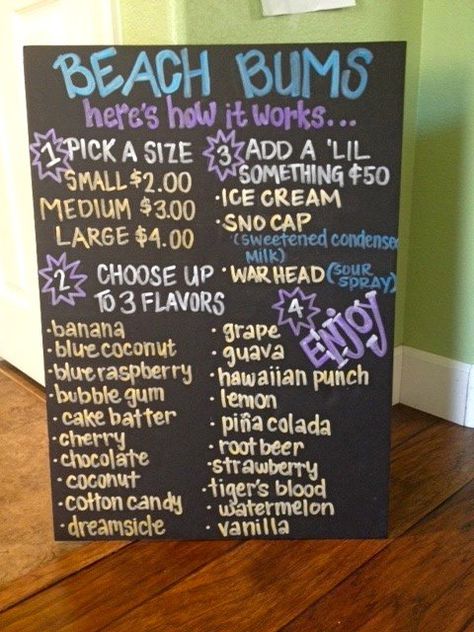 BEACH BUMS
here's how it works...
1 PICK A SIZE
SMALL $2.00
MEDIUM $3.00
LARGE $4.00
2 CHOOSE UP
TO 3 FLAVORS
·banana
·blue coconut
·blue raspberry
·bubble gum
·cake batter
·cherry
·chocolate
·coconut
·cotton candy
·dreamsicle
·grape
·guava
·hawaiian punch
·lemon
·piña colada
·root beer
·strawberry
·tiger's blood
·watermelon
·vanilla
3 ADD A 'LIL
SOMETHING ¢50
·ICE CREAM
·SNO CAP
(sweetened condensed
milk)
·WARHEAD (SOUR
SPRAY)
4 ENJOY